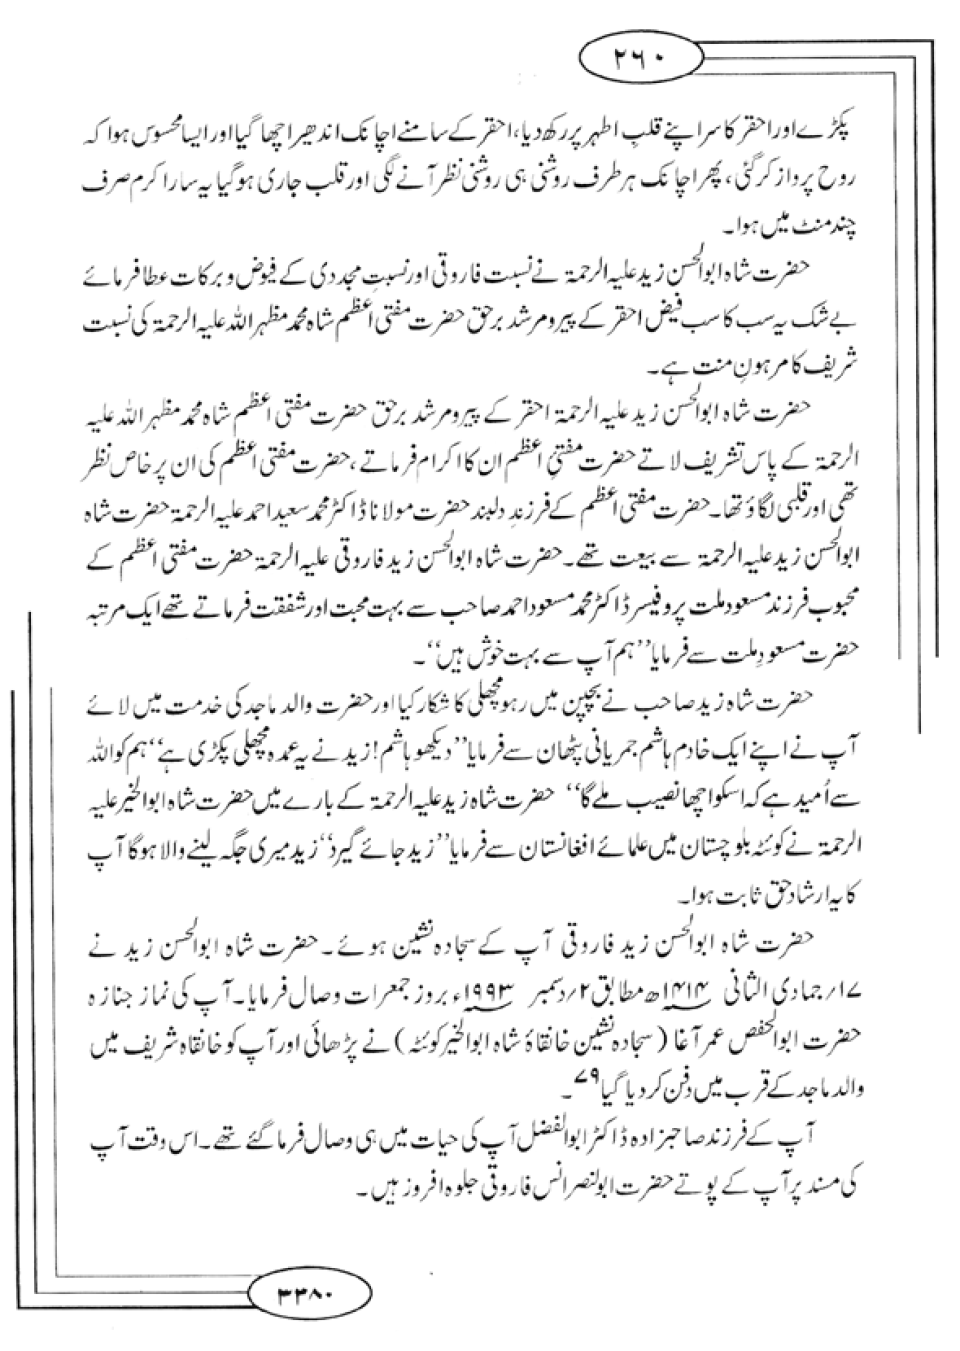 ۲۶۰
پکڑے اور احقر کا سر اپنے قلبِ اطہر پر رکھ دیا، احقر کے سامنے اچانک اندھیرا چھا گیا اور ایسا محسوس ہوا کہ
روح پرواز کر گئی، پھر اچانک ہر طرف روشنی ہی روشنی نظر آنے لگی اور قلب جاری ہوگیا یہ سارا کرم صرف
چند منٹ میں ہوا۔
حضرت شاہ ابوالحسن زید علیہ الرحمۃ نے نسبت فاروقی اور نسبتِ مجددی کے فیوض و برکات عطا فرمائے
بے شک یہ سب کا سب فیض احقر کے پیر و مرشد برحق حضرت مفتی اعظم شاہ محمد مظہر اللہ علیہ الرحمۃ کی نسبت
شریف کا مرہونِ منت ہے۔
حضرت شاہ ابوالحسن زید علیہ الرحمۃ احقر کے پیر و مرشد برحق حضرت مفتی اعظم شاہ محمد مظہر اللہ علیہ
الرحمۃ کے پاس تشریف لاتے حضرت مفتیٔ اعظم ان کا اکرام فرماتے، حضرت مفتی اعظم کی ان پر خاص نظر
تھی اور قلبی لگاؤ تھا۔ حضرت مفتی اعظم کے فرزندِ دلبند حضرت مولانا ڈاکٹر محمد سعید احمد علیہ الرحمۃ حضرت شاہ
ابوالحسن زید علیہ الرحمۃ سے بیعت تھے۔ حضرت شاہ ابوالحسن زید فاروقی علیہ الرحمۃ حضرت مفتی اعظم کے
محبوب فرزند مسعود ملت پروفیسر ڈاکٹر محمد مسعود احمد صاحب سے بہت محبت اور شفقت فرماتے تھے ایک مرتبہ
حضرت مسعودِ ملت سے فرمایا ’’ہم آپ سے بہت خوش ہیں‘‘۔
حضرت شاہ زید صاحب نے بچپن میں رہو مچھلی کا شکار کیا اور حضرت والد ماجد کی خدمت میں لائے
آپ نے اپنے ایک خادم ہاشم جمریانی پٹھان سے فرمایا ’’دیکھو ہاشم! زید نے یہ عمدہ مچھلی پکڑی ہے‘‘ ہم کو اللہ
سے اُمید ہے کہ اسکو اچھا نصیب ملے گا‘‘ حضرت شاہ زید علیہ الرحمۃ کے بارے میں حضرت شاہ ابوالخیر علیہ
الرحمۃ نے کوئٹہ بلوچستان میں علمائے افغانستان سے فرمایا ’’زید جائے گیرد‘‘ زید میری جگہ لینے والا ہوگا آپ
کا یہ ارشاد حق ثابت ہوا۔
حضرت شاہ ابوالحسن زید فاروقی آپ کے سجادہ نشین ہوئے۔ حضرت شاہ ابوالحسن زید نے
۱۷/ جمادی الثانی ۱۴۱۴ھ مطابق ۲/ دسمبر ۱۹۹۳ء بروز جمعرات وصال فرمایا۔ آپ کی نماز جنازہ
حضرت ابوالحفص عمر آغا (سجادہ نشین خانقاۂ شاہ ابوالخیر کوئٹہ) نے پڑھائی اور آپ کو خانقاہ شریف میں
والد ماجد کے قرب میں دفن کر دیا گیا ۷۹۔
آپ کے فرزند صاحبزادہ ڈاکٹر ابوالفضل آپ کی حیات میں ہی وصال فرما گئے تھے۔ اس وقت آپ
کی مسند پر آپ کے پوتے حضرت ابوالنصر انس فاروقی جلوہ افروز ہیں۔
۳۳۸۰